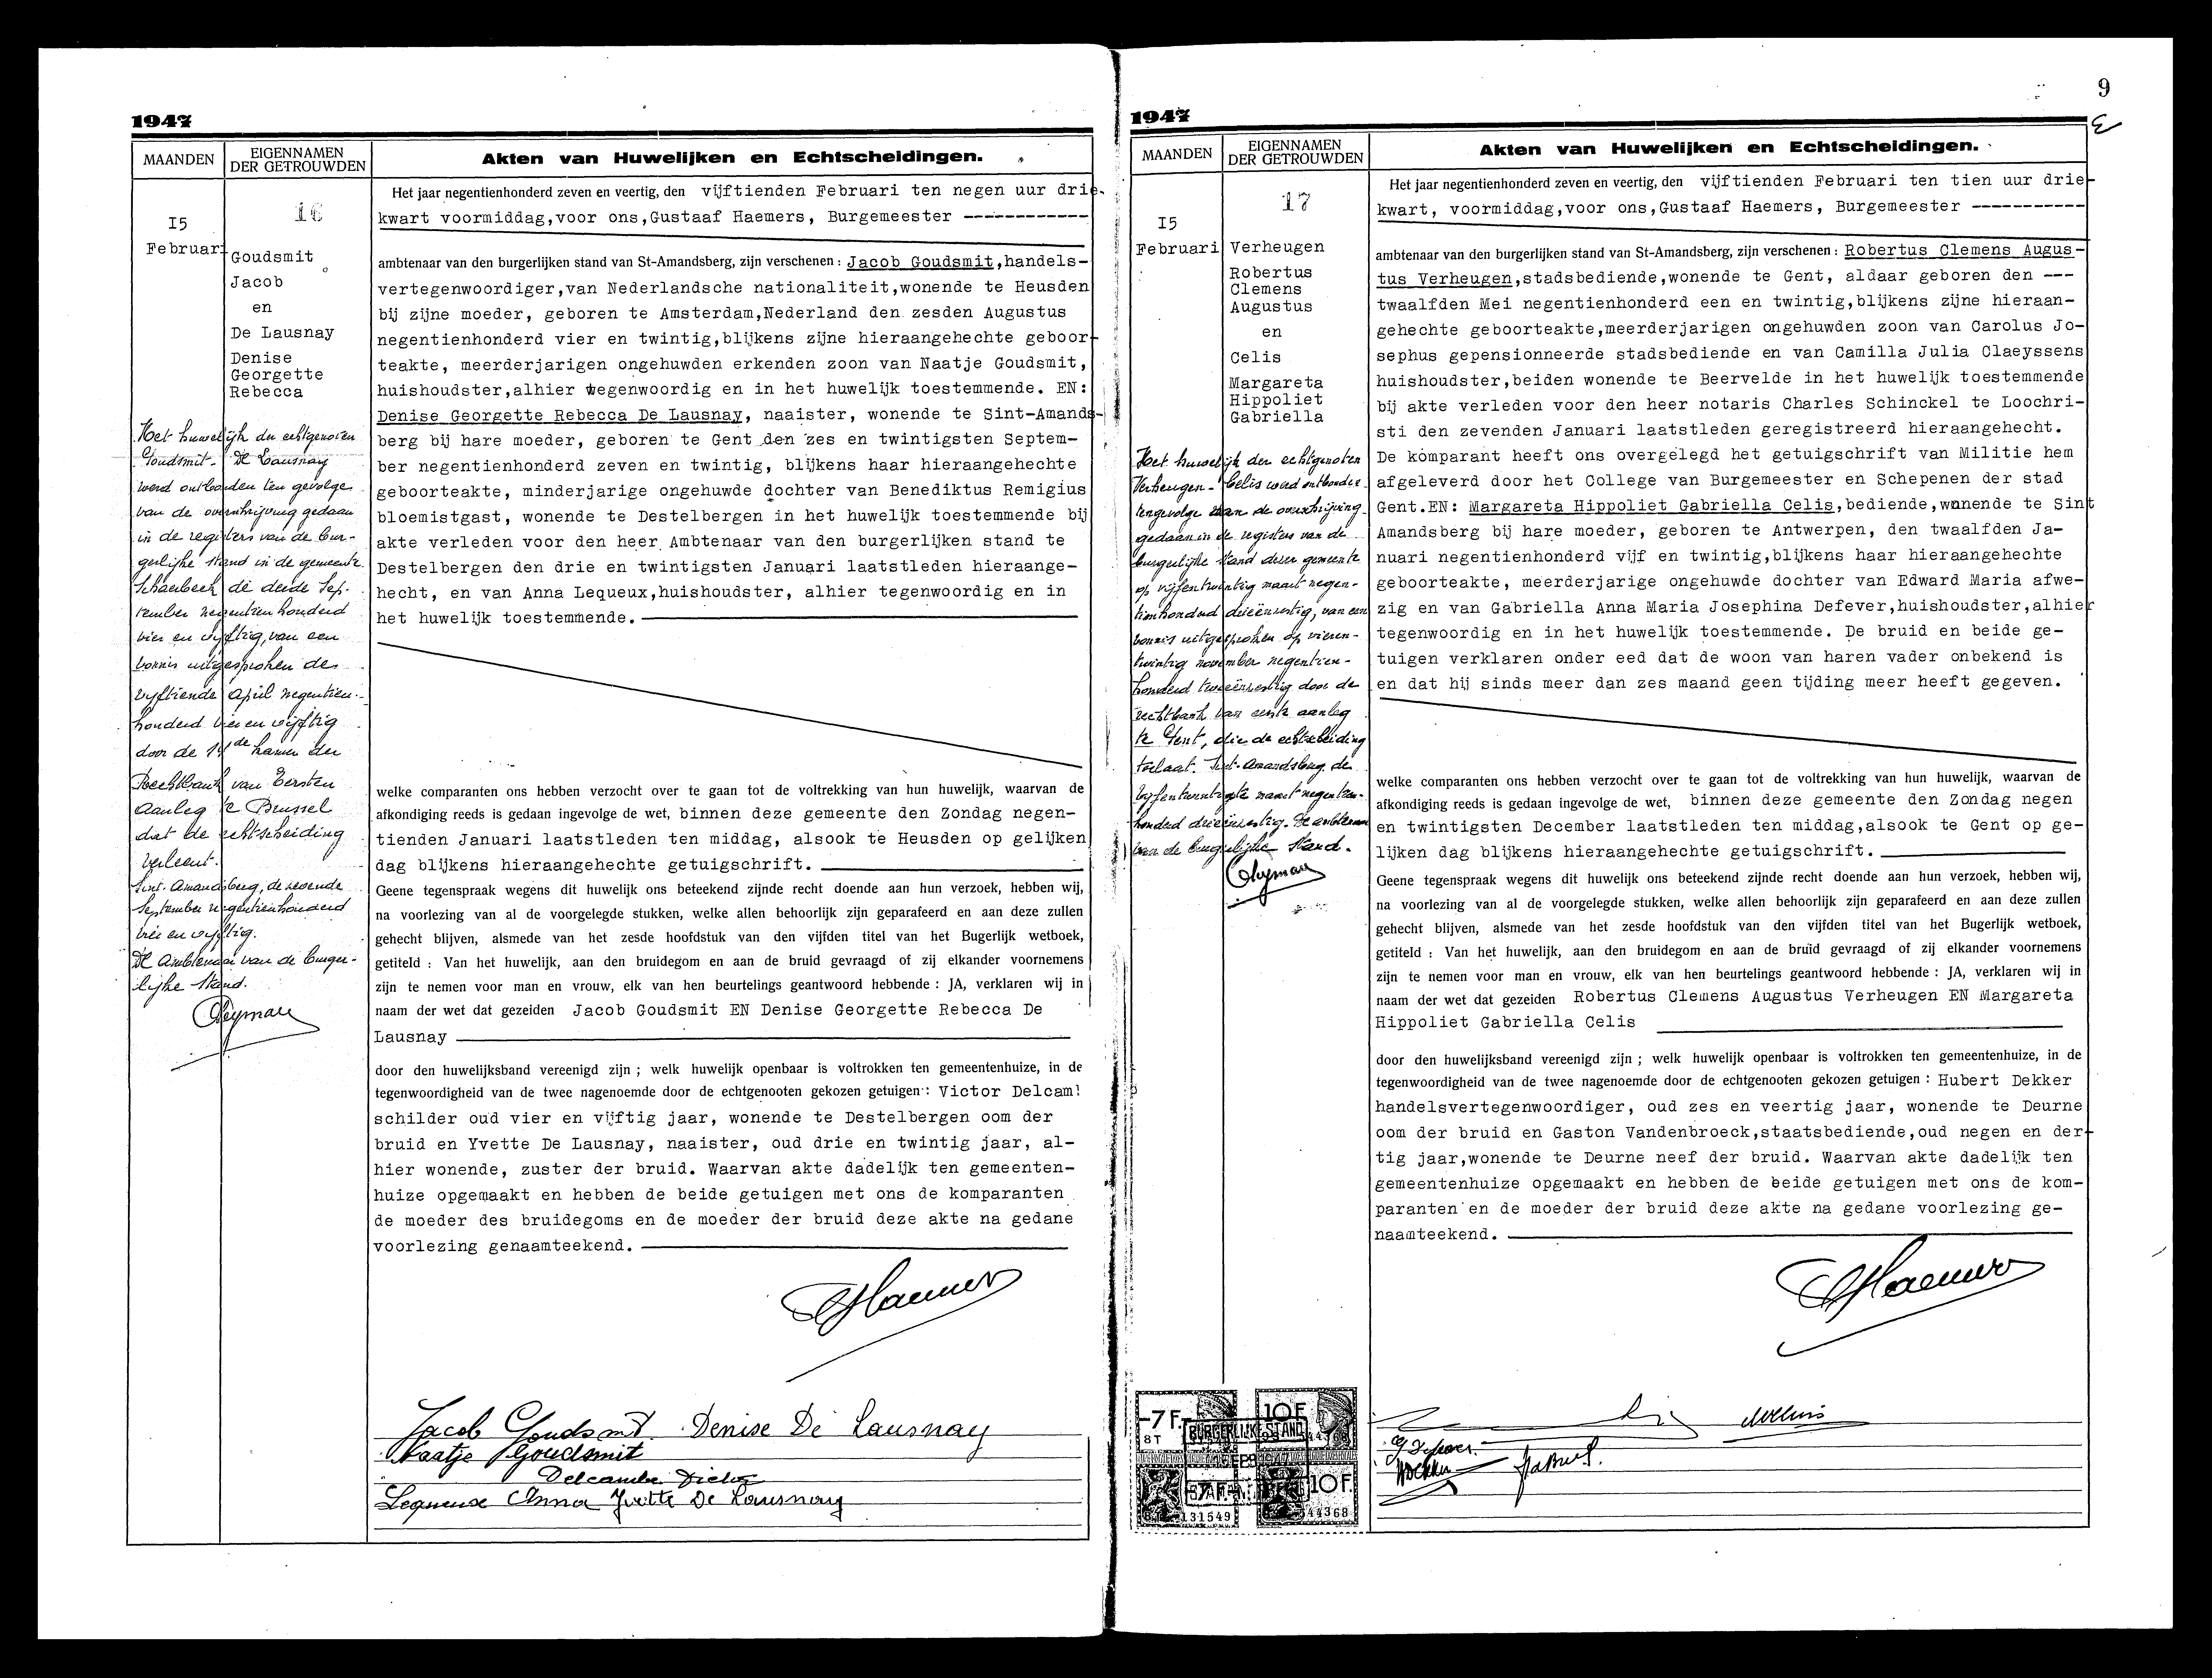 1947
MAANDEN
EIGENNAMEN
DER GETROUWDEN
Akten van Huwelijken en Echtscheidingen.
I5
Februari
16
Goudsmit
Jacob
en
De Lausnay
Denise
Georgette
Rebecca
Het huwelijk der echtgenoten
Goudsmit - De Lausnay
werd ontbonden ten gevolge
van de overschrijving gedaan
in de registers van de bur-
gerlijke stand in de gemeente
Schaerbeek de derde Sep-
tember negentienhonderd
vier en vijftig, van een
vonnis uitgesproken de
vijftiende April negentien-
honderd vier en vijftig
door de kamer der
Rechtbank van Eersten
Aanleg te Brussel
dat de echtscheiding
verleent.
Sint-Amandsberg, de zevende
September negentienhonderd
vier en vijftig.
De Ambtenaar van de burger-
lijke stand.
Het jaar negentienhonderd zeven en veertig, den vijftienden Februari ten negen uur drie-
kwart voormiddag,voor ons,Gustaaf Haemers, Burgemeester ------------
ambtenaar van den burgerlijken stand van St-Amandsberg, zijn verschenen : Jacob Goudsmit,handels-
vertegenwoordiger,van Nederlandsche nationaliteit,wonende te Heusden
bij zijne moeder, geboren te Amsterdam,Nederland den zesden Augustus
negentienhonderd vier en twintig,blijkens zijne hieraangehechte geboor-
teakte, meerderjarigen ongehuwden erkenden zoon van Naatje Goudsmit,
huishoudster,alhier tegenwoordig en in het huwelijk toestemmende. EN:
Denise Georgette Rebecca De Lausnay, naaister, wonende te Sint-Amands-
berg bij hare moeder, geboren te Gent den zes en twintigsten Septem-
ber negentienhonderd zeven en twintig, blijkens haar hieraangehechte
geboorteakte, minderjarige ongehuwde dochter van Benediktus Remigius
bloemistgast, wonende te Destelbergen in het huwelijk toestemmende bij
akte verleden voor den heer Ambtenaar van den burgerlijken stand te
Destelbergen den drie en twintigsten Januari laatstleden hieraange-
hecht, en van Anna Lequeux,huishoudster, alhier tegenwoordig en in
het huwelijk toestemmende.
welke comparanten ons hebben verzocht over te gaan tot de voltrekking van hun huwelijk, waarvan de
afkondiging reeds is gedaan ingevolge de wet, binnen deze gemeente den Zondag negen-
tienden Januari laatstleden ten middag, alsook te Heusden op gelijken
dag blijkens hieraangehechte getuigschrift.
Geene tegenspraak wegens dit huwelijk ons beteekend zijnde recht doende aan hun verzoek, hebben wij,
na voorlezing van al de voorgelegde stukken, welke allen behoorlijk zijn geparafeerd en aan deze zullen
gehecht blijven, alsmede van het zesde hoofdstuk van den vijfden titel van het Bugerlijk wetboek,
getiteld : Van het huwelijk, aan den bruidegom en aan de bruid gevraagd of zij elkander voornemens
zijn te nemen voor man en vrouw, elk van hen beurtelings geantwoord hebbende : JA, verklaren wij in
naam der wet dat gezeiden Jacob Goudsmit EN Denise Georgette Rebecca De
Lausnay
door den huwelijksband vereenigd zijn ; welk huwelijk openbaar is voltrokken ten gemeentenhuize, in de
tegenwoordigheid van de twee nagenoemde door de echtgenooten gekozen getuigen : Victor Delcam
schilder oud vier en vijftig jaar, wonende te Destelbergen oom der
bruid en Yvette De Lausnay, naaister, oud drie en twintig jaar, al-
hier wonende, zuster der bruid. Waarvan akte dadelijk ten gemeenten-
huize opgemaakt en hebben de beide getuigen met ons de komparanten
de moeder des bruidegoms en de moeder der bruid deze akte na gedane
voorlezing genaamteekend.
GHaemers
Jacob Goudsmit. Denise De Lausnay
Naatje Goudsmit
Delcambe Victor
Lequeux Anna Yvette De Lausnay
9
1947
MAANDEN
EIGENNAMEN
DER GETROUWDEN
Akten van Huwelijken en Echtscheidingen.
I5
Februari
17
Verheugen
Robertus
Clemens
Augustus
en
Celis
Margareta
Hippoliet
Gabriella
Het huwelijk der echtgenoten
Verheugen - Celis werd ontbonden
tengevolge van de overschrijving
gedaan in de registers van de
burgerlijke stand dezer gemeente
op vijfentwintig maart negen-
tienhonderd drieënzestig, van een
vonnis uitgesproken op vieren-
twintig november negentien-
honderd tweeënzestig door de
rechtbank van eerste aanleg
te Gent, die de echtscheiding
toelaat. Sint-Amandsberg de
vijfentwintigste maart negentien-
honderd drieënzestig. De ambtenaar
van de burgerlijke stand.
Het jaar negentienhonderd zeven en veertig, den vijftienden Februari ten tien uur drie-
kwart, voormiddag,voor ons,Gustaaf Haemers, Burgemeester -----------
ambtenaar van den burgerlijken stand van St-Amandsberg, zijn verschenen : Robertus Clemens Augus-
tus Verheugen,stadsbediende,wonende te Gent, aldaar geboren den ---
twaalfden Mei negentienhonderd een en twintig,blijkens zijne hieraan-
gehechte geboorteakte,meerderjarigen ongehuwden zoon van Carolus Jo-
sephus gepensionneerde stadsbediende en van Camilla Julia Claeyssens
huishoudster,beiden wonende te Beervelde in het huwelijk toestemmende
bij akte verleden voor den heer notaris Charles Schinckel te Loochri-
sti den zevenden Januari laatstleden geregistreerd hieraangehecht.
De komparant heeft ons overgelegd het getuigschrift van Militie hem
afgeleverd door het College van Burgemeester en Schepenen der stad
Gent.EN: Margareta Hippoliet Gabriella Celis,bediende,wonende te Sint
Amandsberg bij hare moeder, geboren te Antwerpen, den twaalfden Ja-
nuari negentienhonderd vijf en twintig,blijkens haar hieraangehechte
geboorteakte, meerderjarige ongehuwde dochter van Edward Maria afwe-
zig en van Gabriella Anna Maria Josephina Defever,huishoudster,alhier
tegenwoordig en in het huwelijk toestemmende. De bruid en beide ge-
tuigen verklaren onder eed dat de woon van haren vader onbekend is
en dat hij sinds meer dan zes maand geen tijding meer heeft gegeven.
welke comparanten ons hebben verzocht over te gaan tot de voltrekking van hun huwelijk, waarvan de
afkondiging reeds is gedaan ingevolge de wet, binnen deze gemeente den Zondag negen
en twintigsten December laatstleden ten middag,alsook te Gent op ge-
lijken dag blijkens hieraangehechte getuigschrift.
Geene tegenspraak wegens dit huwelijk ons beteekend zijnde recht doende aan hun verzoek, hebben wij,
na voorlezing van al de voorgelegde stukken, welke allen behoorlijk zijn geparafeerd en aan deze zullen
gehecht blijven, alsmede van het zesde hoofdstuk van den vijfden titel van het Bugerlijk wetboek,
getiteld : Van het huwelijk, aan den bruidegom en aan de bruid gevraagd of zij elkander voornemens
zijn te nemen voor man en vrouw, elk van hen beurtelings geantwoord hebbende : JA, verklaren wij in
naam der wet dat gezeiden Robertus Clemens Augustus Verheugen EN Margareta
Hippoliet Gabriella Celis
door den huwelijksband vereenigd zijn ; welk huwelijk openbaar is voltrokken ten gemeentenhuize, in de
tegenwoordigheid van de twee nagenoemde door de echtgenooten gekozen getuigen : Hubert Dekker
handelsvertegenwoordiger, oud zes en veertig jaar, wonende te Deurne
oom der bruid en Gaston Vandenbroeck,staatsbediende,oud negen en der-
tig jaar,wonende te Deurne neef der bruid. Waarvan akte dadelijk ten
gemeentenhuize opgemaakt en hebben de beide getuigen met ons de kom-
paranten en de moeder der bruid deze akte na gedane voorlezing ge-
naamteekend.
GHaemers
7F.
10F.
BURGERLIJKE STAND
7F.
10F.
131549
44368